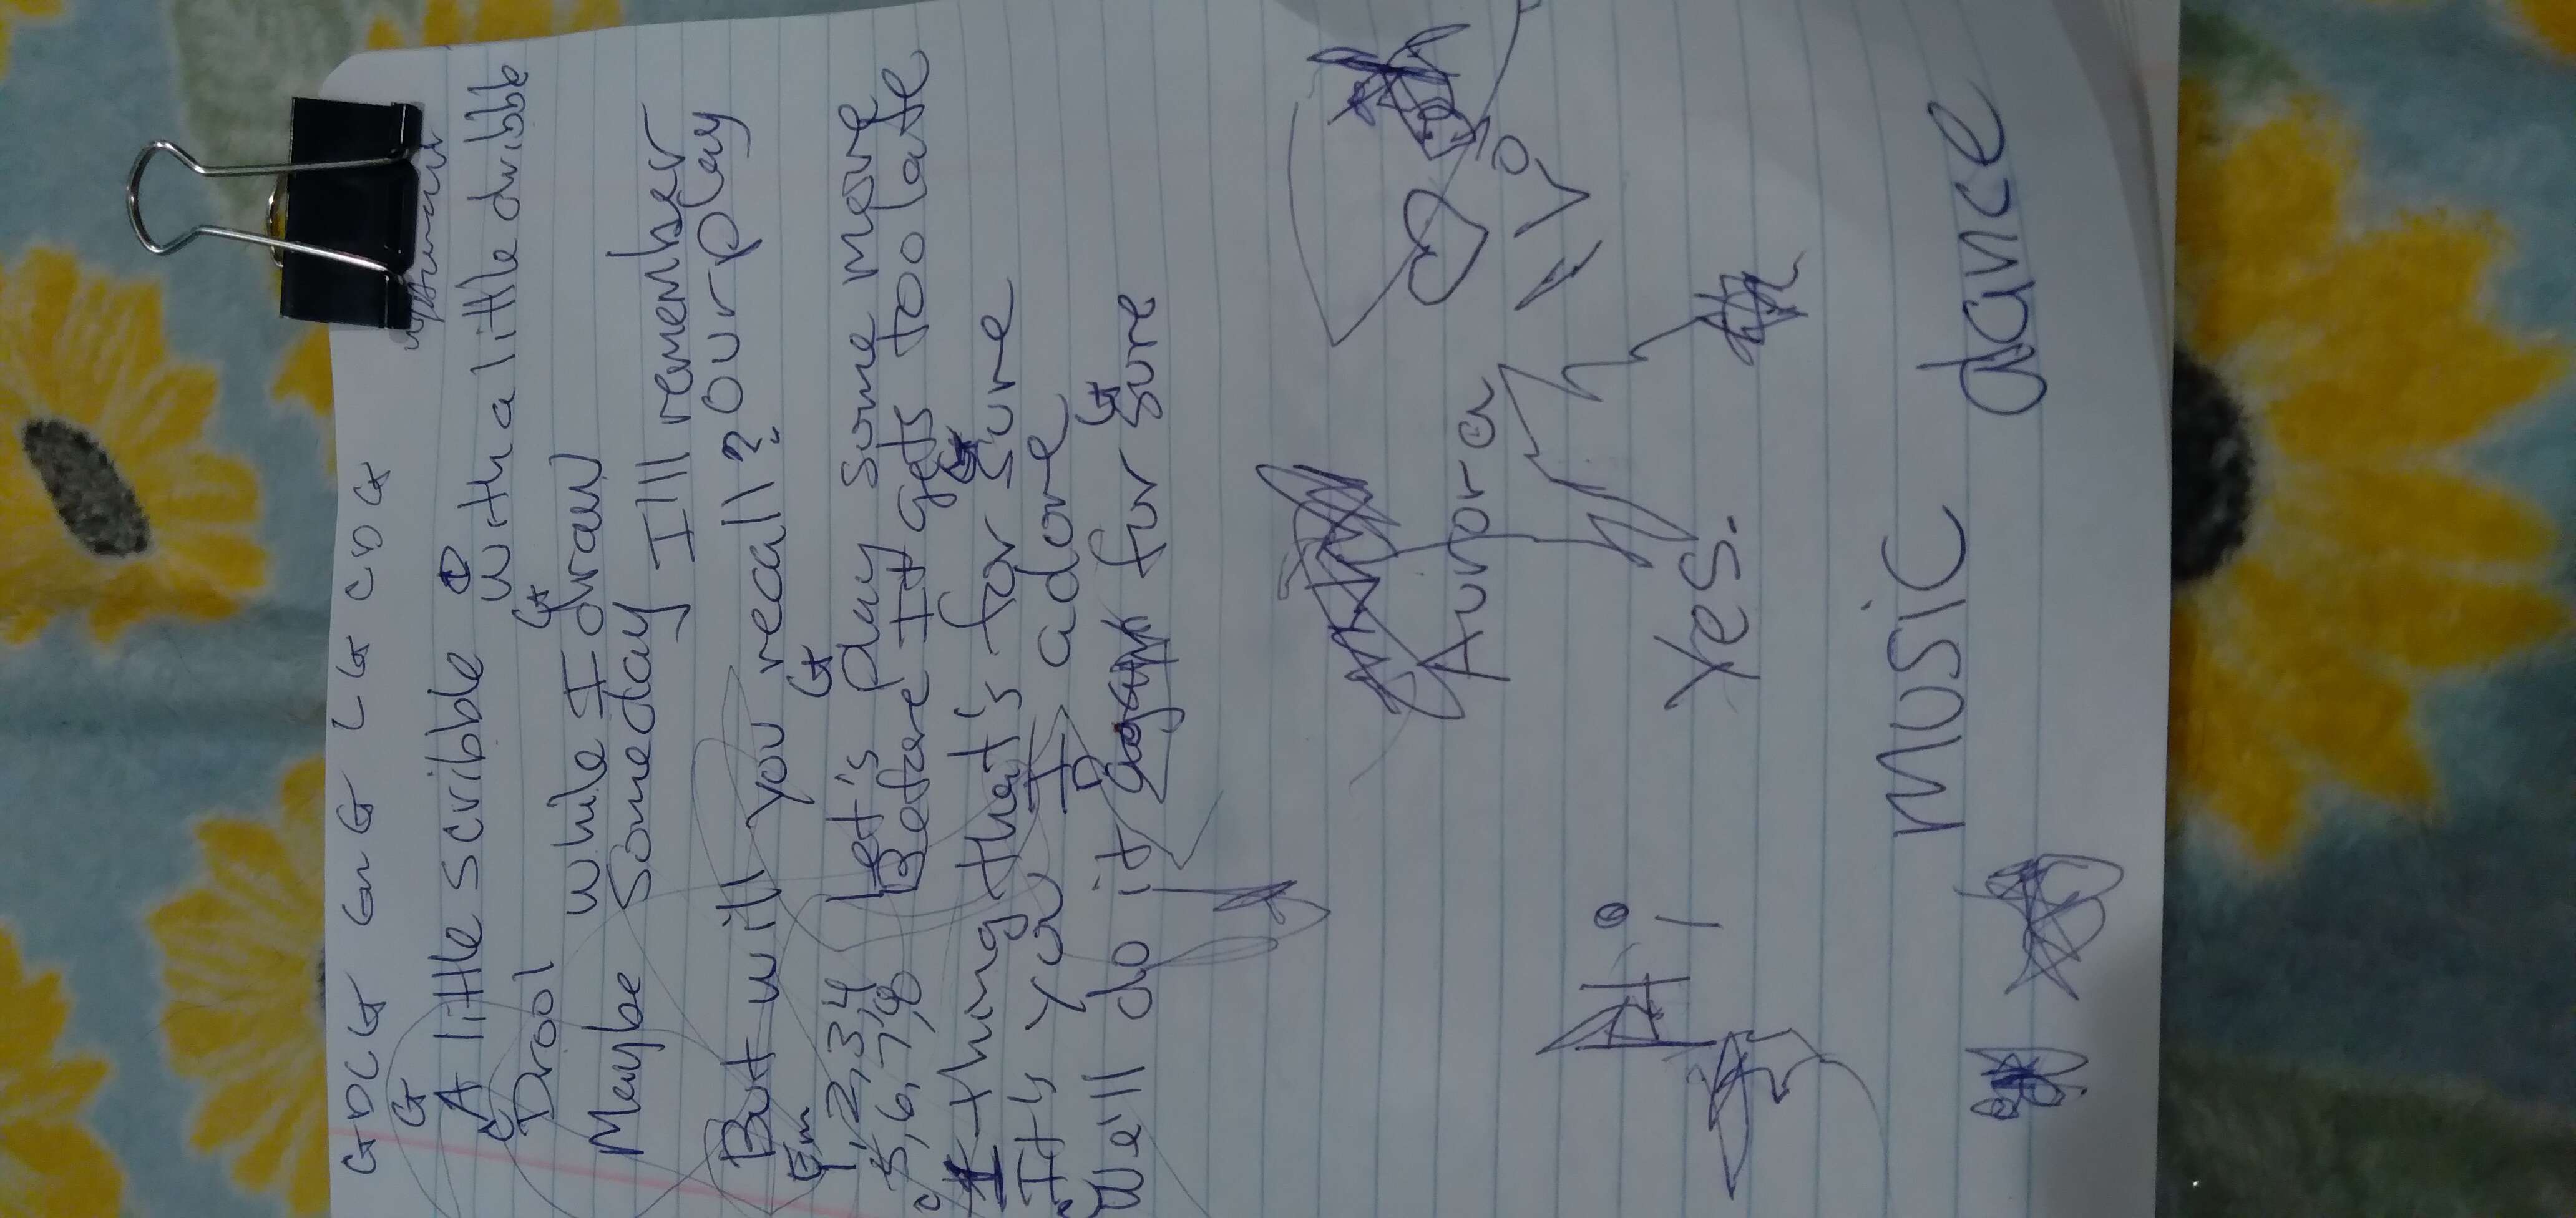 G D C G G G L G C D G
G D
A little scribble with a little dribble
C G
Drool while I draw
Maybe Someday I'll remember
But will you recall? Our play
Em G
1, 2, 3, 4 Let's Play some more
5, 6, 7, 8 Before It gets too late
C G
I thing that's for sure
It's you I adore
D G
We'll do it for sure
Aurora
Hi, Yes.
music dance